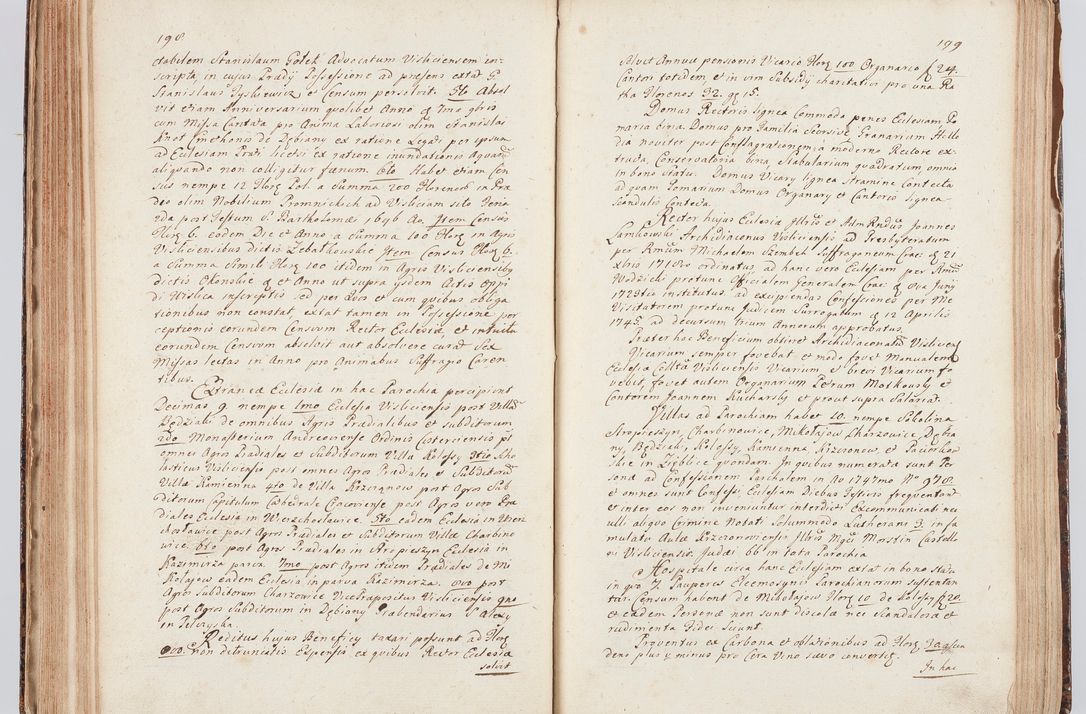 198
stabilem Stanislaum Gołek Advocatum Visliciensem in-
scripta, in cujus Prædij Possessione ad præsens extat G
Stanislaus Zyskiewicz et Censum persolvit. 5to Absol
vit etiam Anniversarium quolibet Anno
cum Missa Cantata pro Anima Laboriosi olim Stanislai
Knot Kmethonis de Dębiany ex ratione Legati per ipsum
ad Ecclesiam Prati licet ex ratione inundationis Aquarū
aliquando non colligitur fœnum. 6to Habet etiam Cen
sus nempe 12 Florz Pol. a Summa 200 Florenorū in Præ
dio olim Nobilium Promnickich ad Visliciam sito Feria
2da post Festum S. Bartholomæi 1646 Ao. Item Census
Florz 6. eodem Die et Anno a Summa 100 Florz in Agris
Visliciensibus dictis Item Census Florz 6.
a Summa Simili Florz 100 itidem in Agris Visliciensibz
dictis Okonskie et Anno ut supra ijsdem Actis Oppi
di Vislica inscriptis sed per Quos et cum quibus obliga
tionibus non constat, extat tamen in Possessione per
ceptionis eorundem Censuum Rector Ecclesiæ et intuitu
eorundem Censuum absolvit aut absolvere curat Sex
Missas lectas in Anno pro Animabus Suffragio Caren
tibus.
Extraneæ Ecclesiæ in hac Parochia percipiunt
Decimas 9 nempe 1mo Ecclesia Visliciensis post Villā
de omnibus Agris Prædialibus et subditorum
2do Monasterium Andreoviense Ordinis Cisterciensis pt
omnes Agros Prædiales et Subditorum Villæ Kolossy 3tio Scho
lasticus Visliciensis post omnes Agros Prædiales et Subditorū
Villæ Kamienna 4to de Villa Krzczonow post Agros Sub
ditorum Capitulum Cathedrale Cracoviense post Agros vero Præ
diales Ecclesia in Wierzchosławice. 5to eadem Ecclesia in Wierz
chosławice post Agros Prædiales et Subditorum Villæ Charbino
wice. 6to post Agros Prædiales in Stropieszyn Ecclesia in
Kazimirza parva. 7mo post Agros itidem Prædiales de Mi
kołajow eadem Ecclesia in parva Kazimirza. 8vo post
Agros Subditorum Charzowice VicePræpositus Visliciensis 9no
post Agros Subditorum in Dębiany Præbendarius S Alexy
in Pelczyska.
Reditus hujus Beneficij taxari possunt ad Florz
non detruncatis Expensis ex quibus Rector Ecclesiæ
solvit
199
solvit Annuæ pensionis Vicario Florz 100 Organario f 24.
Cantori totidem, et in vim Subsidij charitativi pro una Ra
tha Florenos 32. gr 15.
Domus Rectoris lignea Commoda penes Ecclesiam Po
maria bina. Domus pro Familia seorsive Granarium Stu
dia noviter post Conflagrationem a moderno Rectore ex-
tructa, Conservatoria bina, Stabularium quadratum omnia
in bono statu. Domus Vicarij lignea Stramine Contecta
ad quam Pomarium Domus Organarij et Cantoris lignea
Scandulis Contecta.
Rector hujus Ecclesiæ Illris et Adm Rndus Joannes
Lamkowski Archidiaconus Visliciensis ad Presbyteratum
per Rmum Michaelem Szembek Suffraganeum Crac: 21
xbris 1718vo ordinatus, ad hanc vero Ecclesiam per Rmū
Wodzicki protunc Officialem Generalem Crac: 8va Junij
1723tio institutus. ad excipiendas Confessiones per Me
Visitatorem protunc Judicem Surrogatum 12 Aprilis
1745 ad decursum trium Annorum approbatus.
Præter hoc Beneficium obtinet Archidiaconatū Visliciens
Vicarium semper fovebat et modo fovet Manualem
Ecclesiæ Collæ Visliciensis Vicarium et brevi Vicarium fo
vebit, fovet autem Organarium Petrum Motkowsky et
Cantorem Joannem Kucharsky et prout supra Salariat.
Villas ad Parochiam habet 10. nempe Sokolina
Stropieszyn, Charbinowice, Mikołajow Charzowice, Dębia
ny, Będziaki, Kolossy, Kamienna Krzczonow, et Paciorko
skie in quondam. In quibus numerata sunt Per
sonæ ad Confessionem Paschalem in Ao 1747mo No 978.
et omnes sunt Confessi. Ecclesiam Diebus Festivis frequentant
et inter eos non inveniuntur interdicti Excommunicati nec
ulli aliquo Crimine Notati Solummodo Lutherani 3. in fa
mulatu Aulæ Krzczonoviensis Illris Mgci Morstin Castella
ni Visliciensis. Judæi 66 in tota Parochia
Hospitale circa hanc Ecclesiam extat in bono Statu
in quo 7 Pauperes Eleemosynis Parochianorum sustentan
tur, Censum habent de Mikołajow Florz 10. de Kolossy f 20.
et eadem Personæ non sunt discolæ nec Scandalosæ et
rudimenta Fidei Sciunt.
Proventus ex Carbona et oblationibus ad Florz
dena plus minus pro Cera Vino sævo convertitz.
In hac